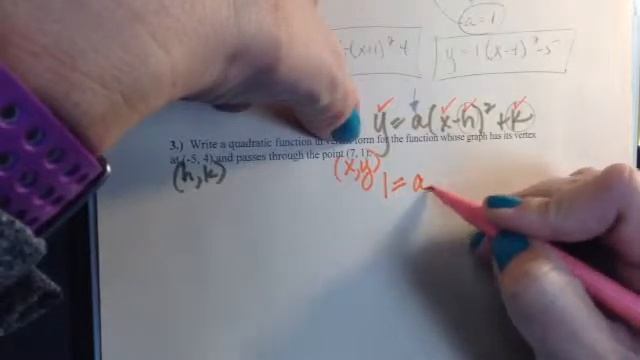 a=1
-(x+1)²+
y=1(x-1)²-5
y=a(x-h)²+k
3.) Write a quadratic function in vertex form for the function whose graph has its vertex
at (-5, 4) and passes through the point (7, 1).
(h,k) (x,y)
1=a